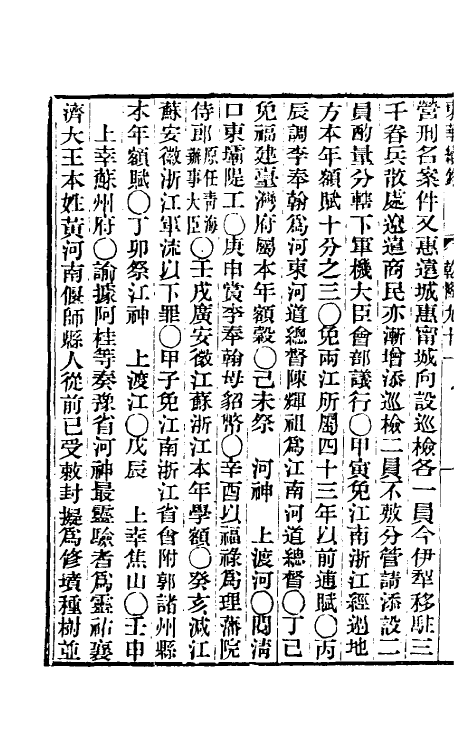 營刑名案件又惠遠城惠甯城向設巡檢各一員今伊犁移駐三
千眷兵散處遼遠商民亦漸增添巡檢二員不敷分管請添設二
員酌量分轄下軍機大臣會部議行○甲寅免江南浙江經過地
方本年額賦十分之三○免兩江所屬四十三年以前逋賦○丙
辰調李奉翰爲河東河道總督陳輝祖爲江南河道總督○丁巳
免福建臺灣府屬本年額穀○己未祭 河神 上渡河○閱清
口東壩隄工○庚申賞李奉翰母貂幣○辛酉以福祿爲理藩院
侍郎原任靑海辦事大臣○壬戌廣安徽江蘇浙江本年學額○癸亥減江
蘇安徽浙江軍流以下罪○甲子免江南浙江省會附郭諸州縣
本年額賦○丁卯祭江神 上渡江○戊辰 上幸焦山○壬申
上幸蘇州府○諭據阿桂等奏豫省河神最靈驗者爲靈祐襄
濟大王本姓黃河南偃師縣人從前已受敕封擬爲修墳種樹並